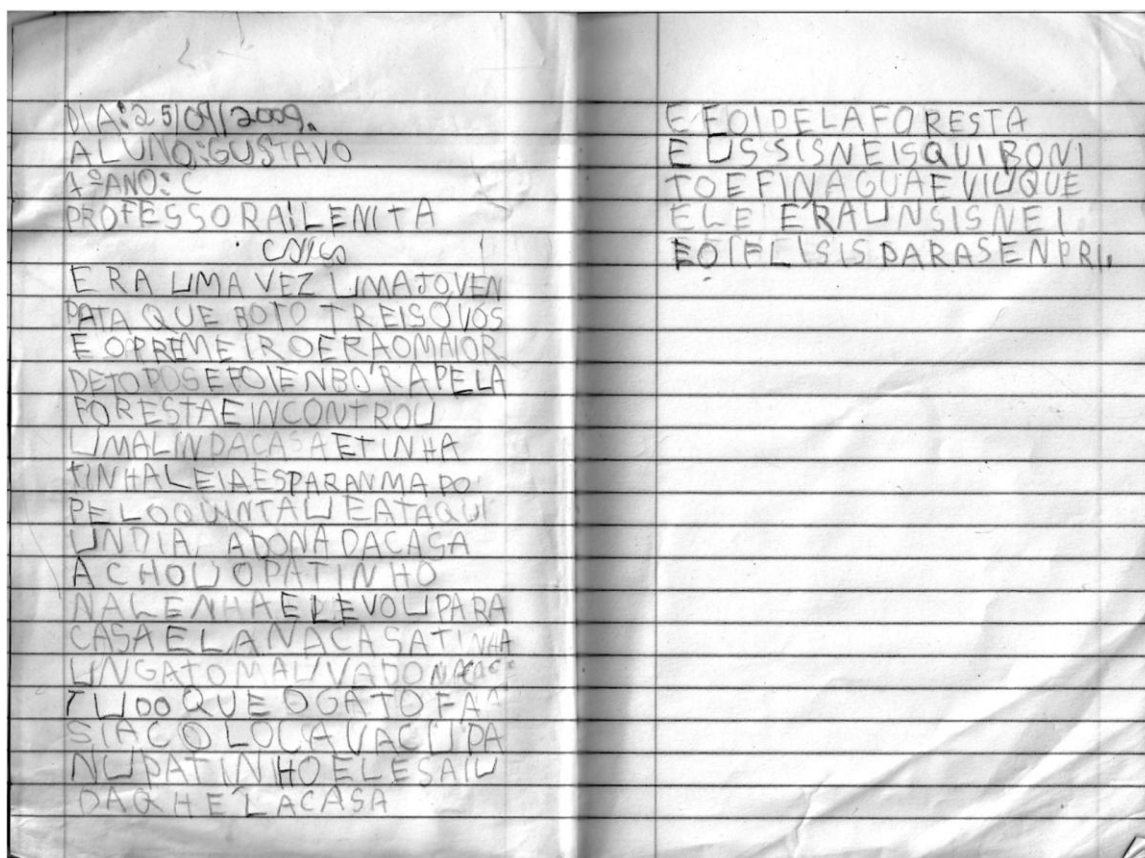 DIA:25/09/2009.
ALUNO:GUSTAVO
1ºANO:C
PROFESSORA:LENITA
ERA UMA VEZ UMAJOVEN
PATA QUE BOTO TREISOVOS
E OPREMEIROERAOMAIOR
DETODOS EFOIENBORAPELA
FORESTAEINCONTROU
UMALINDACASAETINHA
TINHALEIAESPARANMADO
PELOQUINTAUEATAQUI
UNDIA, ADONADACASA
ACHOUOPATINHO
NALENHAELEVOUPARA
CASAELANACASATINHA
UNGATOMAUVADO
TUDOQUE OGATOFA
SIACOLOCAVACUPA
NUPATINHOELESAIU
DAQHELACASA
E FOIPELAFORESTA
E USSISNEISQUIBONI
TOEFINAGUAEVIUQUE
ELE ERAUNSISNEI
EOIFLISISPARASENPRI.